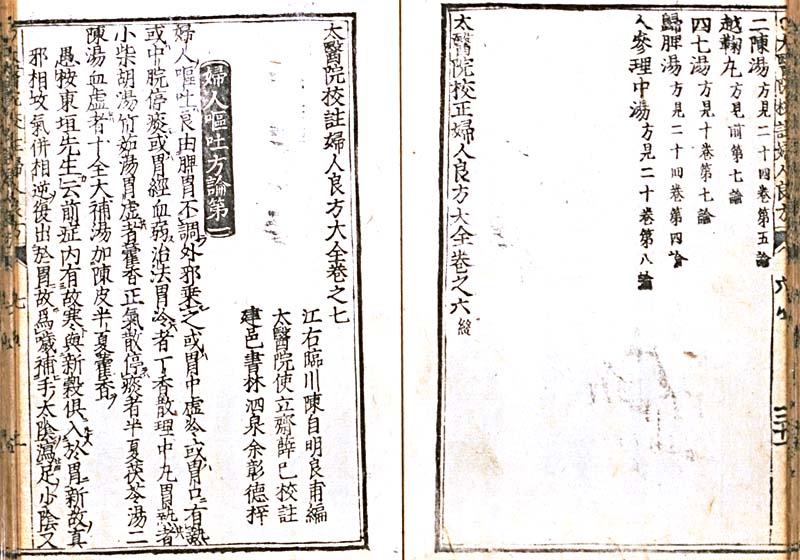 二陳湯方見二十四卷第五論
越鞠丸方見前第七論
四七湯方見十卷第七論
歸脾湯方見二十四卷第四論
人參理中湯方見二十卷第八論
太醫院校正婦人良方大全卷之六終
太醫院校註婦人良方大全卷之七
江右臨川陳自明良甫編
太醫院使立齋薛已校註
建邑書林泗泉余彰德梓
婦人嘔吐方論第一
婦人嘔吐良由脾胃不調外邪乗之或胃中虛冷或胃口有熱
或中脘停痰或胃經血弱治法胃冷者丁香散理中丸胃熱者
小柴胡湯竹茹湯胃虛者藿香正氣散停痰者半夏茯苓湯二
陳湯血虛者十全大補湯加陳皮半夏藿香
愚按東垣先生云前症內有故寒與新穀俱入於胃新故真
邪相攻氣併相逆復出於胃故爲噦補手太陰瀉足少陰又